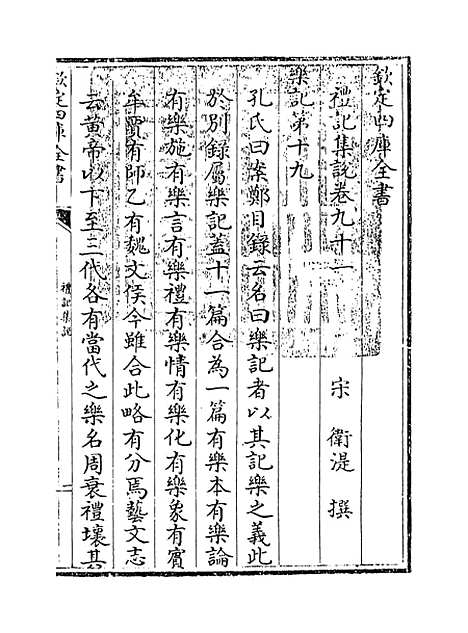 欽定四庫全書
禮記集說卷九十一
宋 衛湜 撰
樂記第十九
孔氏曰案鄭目錄云名曰樂記者以其記樂之義此
於別錄屬樂記蓋十一篇合為一篇有樂本有樂論
有樂施有樂言有樂禮有樂情有樂化有樂象有賓
牟賈有師乙有魏文侯今雖合此略有分焉藝文志
云黃帝以下至三代各有當代之樂名周衰禮壞其
欽定四庫全書
禮記集說
一